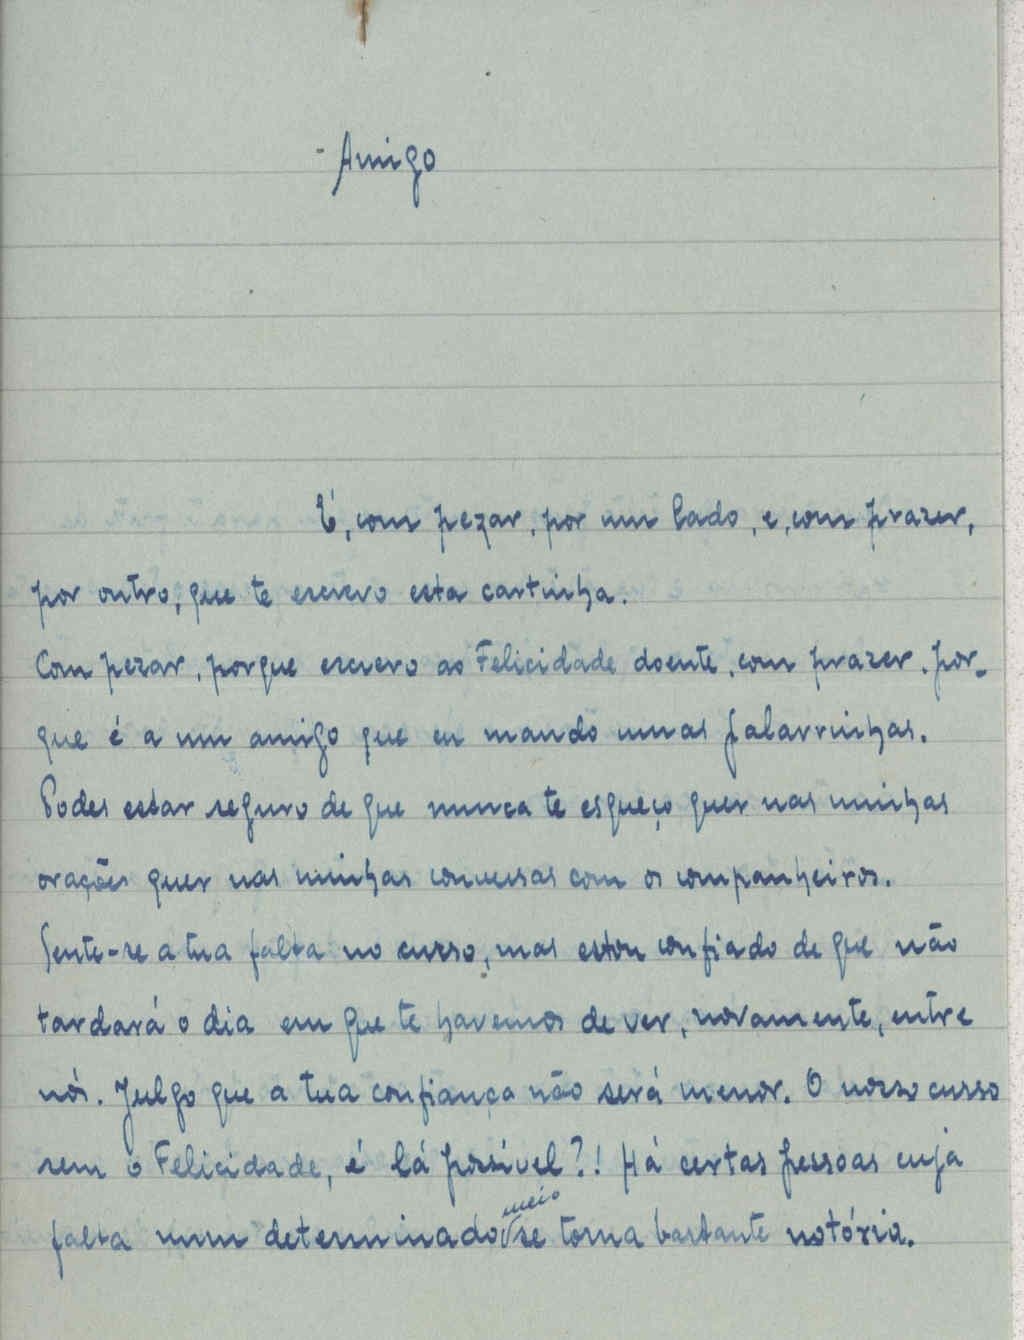 - Amigo
É, com pezar, por um lado, e, com prazer,
por outro, que te escrevo esta cartinha.
Com pezar, porque escrevo ao Felicidade doente, com prazer, por-
que é a um amigo que eu mando umas palavrinhas.
Podes estar seguro de que nunca te esqueço quer nas minhas
orações quer nas minhas conversas com os companheiros.
Sente-se a tua falta no curso, mas estou confiado de que não
tardará o dia em que te havemos de ver, novamente, entre
nós. Julgo que a tua confiança não será menor. O nosso curso
sem o Felicidade, é lá possível?! Há certas pessoas cuja
falta num determinado meio se torna bastante notória.